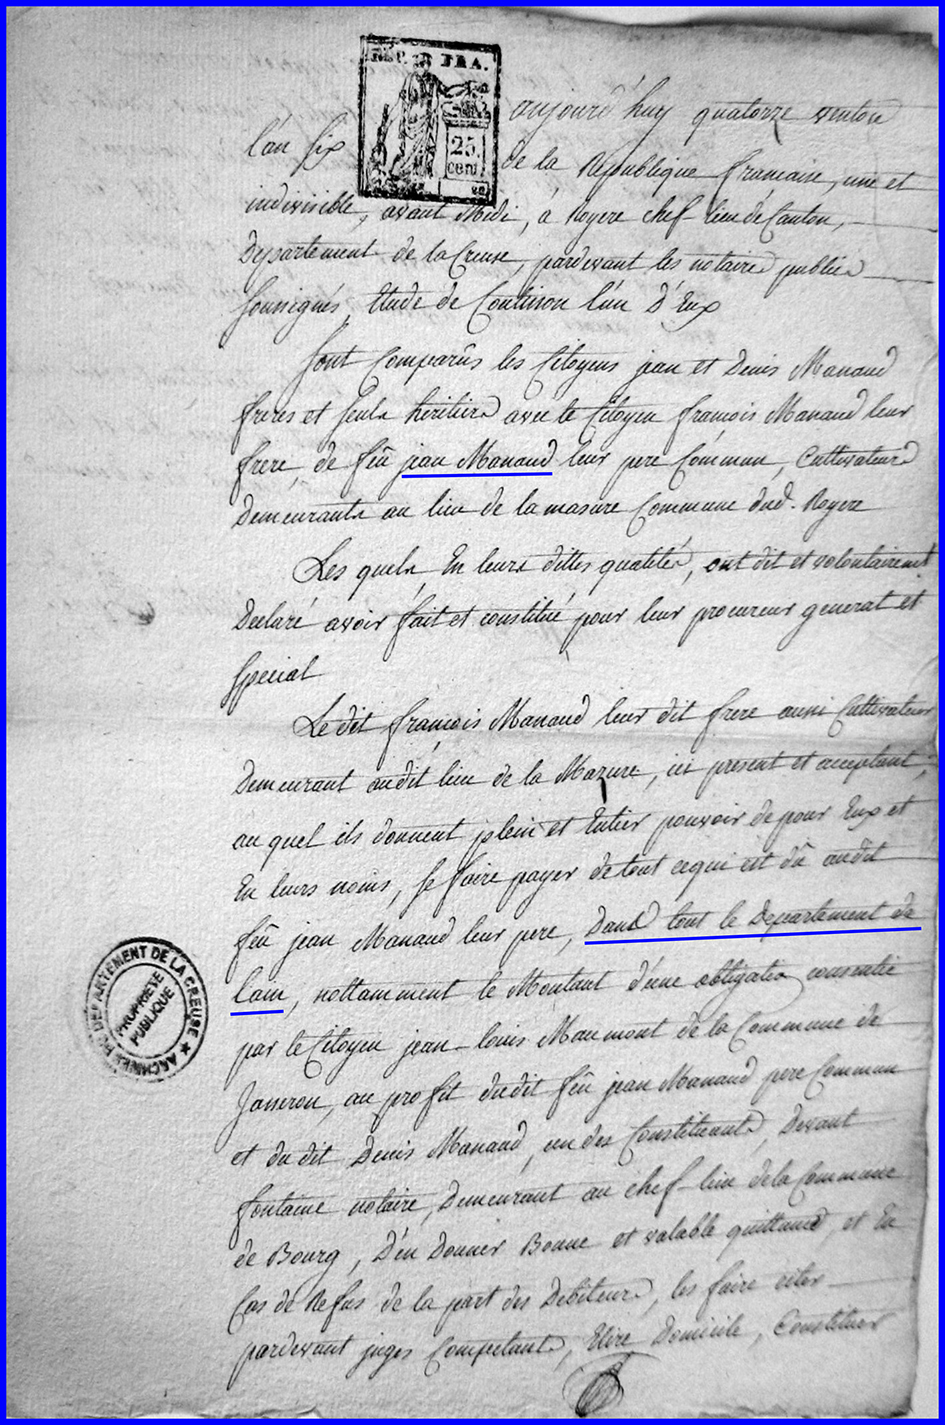 REP. FRA.
25 cent.
aujourd'huy quatorze ventose
l'an six de la Republique francaise, une et
indivisible, avant Midi, à Royere chef-lieu de Canton,
Departement de la Creuse, pardevant les notaires publics
soussignés, Etude de Coutisson l'un D'Eux
Sont Comparûs les Citoyens jean et Denis Manaud
freres et seuls héritiers avec le Citoyen françois Manaud leur
frere de feû jean Manaud leur pere Commun, Cultivateurs
Demeurants au lieu de la masure Commune dud. Royere
Les quels, En leurs dittes qualités, ont dit et volontairement
Declaré avoir fait et constitué pour leur procureur general et
special
Le dit françois Manaud leur dit frere aussi Cultivateur
Demeurant audit lieu de la Mazure, ici present et acceptant,
au quel ils donnent plein et Entier pouvoir de pour Eux et
En leurs noms, se faire payer de tout cequi est dû audit
feû jean Manaud leur pere, Dans tout le Departement de
Lain, nottamment le Montant d'une obligation consentie
par le Citoyen jean-louis Maumont de la Commune de
Jasseron, au profit dudit feû jean Manaud pere Commun
et du dit Denis Manaud, un des Constituants, Devant
fontaine notaire, Demeurant au chef-lieu de la Commune
de Bourg, D'en Donner Bonne et valable quittance, et En
Cas de Refus de la part des Debiteurs, les faire citer
pardevant juges Competants, Elire Domicile, Constituer
ARCHIVES DU DEPARTEMENT DE LA CREUSE
PROPRIETE
PUBLIQUE